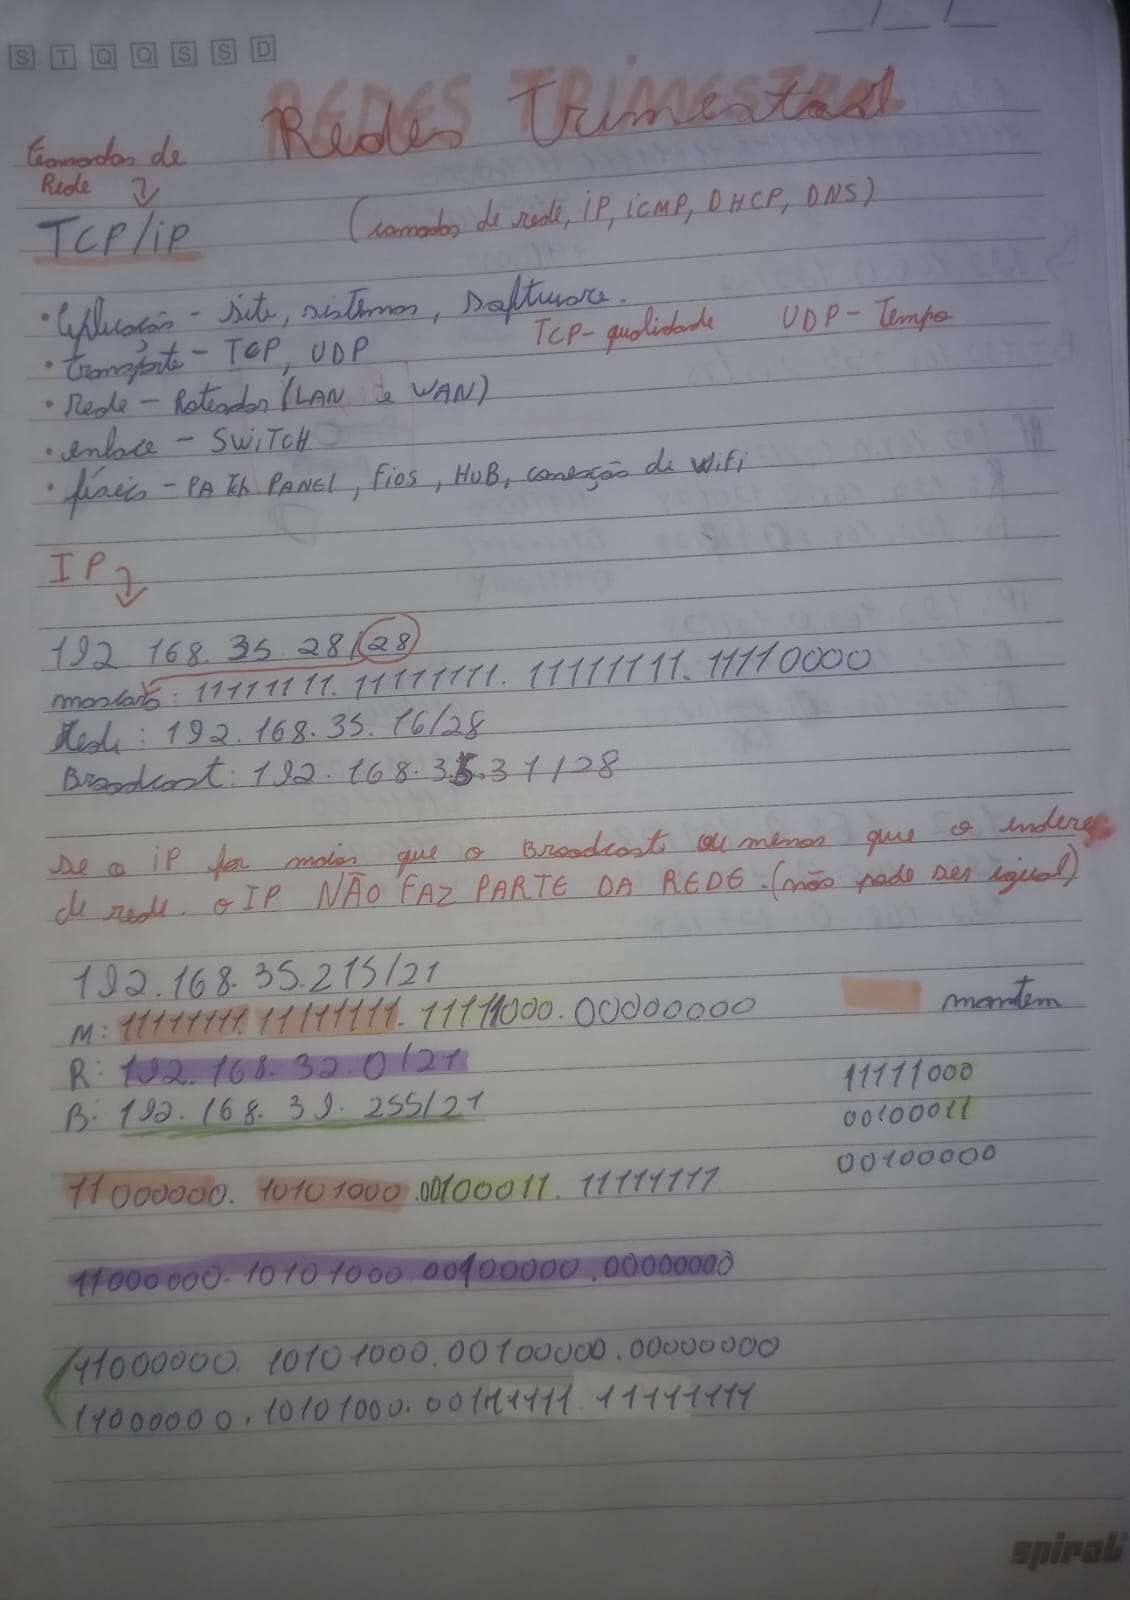 S T Q Q S S D
REDES TRIMESTRAL
Redes Trimestral
Camadas de
Rede
TCP/iP
(camadas de rede, iP, iCMP, DHCP, DNS)
• Aplicação - Site, sistemas, software.
TCP - qualidade UDP - Tempo
• transporte - TCP, UDP
• rede - Roteador (LAN e WAN)
• enlace - SWiTCH
• física - PATCh PANEL, Fios, HUB, conexção de WiFi
IP
192.168.35.28/28
mascara: 11111111.11111111.11111111.11110000
Rede: 192.168.35.16/28
Broadcast: 192.168.35.31/28
se o iP for maior que o Broadcast ou menor que o endereço
de rede. o IP NÃO FAZ PARTE DA REDE. (não pode ser igual)
192.168.35.215/21
M: 11111111.11111111.11111000.00000000
mantem
R: 192.168.32.0/21
11111000
B: 192.168.39.255/21
00100011
00100000
11000000.10101000.00100011.11111111
11000000.10101000.00100000.00000000
11000000.10101000.00100000.00000000
11000000.10101000.00111111.11111111
spiral